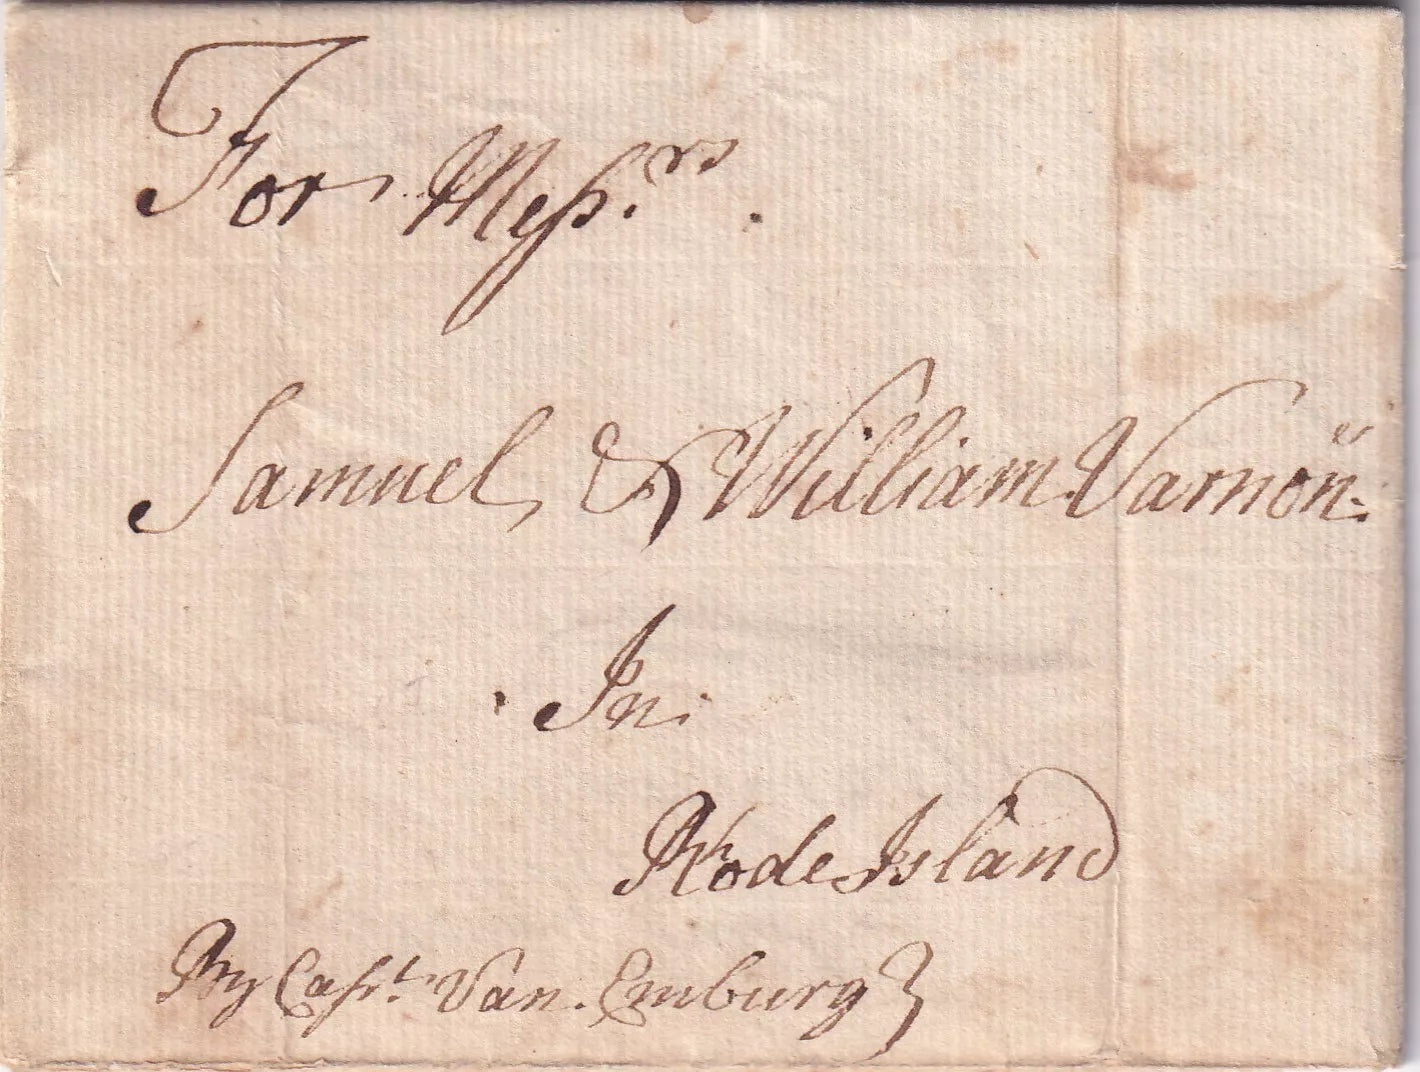 For Messrs.
Samuel & William Varnon.
In
Rhode Island
By Capt. Van Emburg